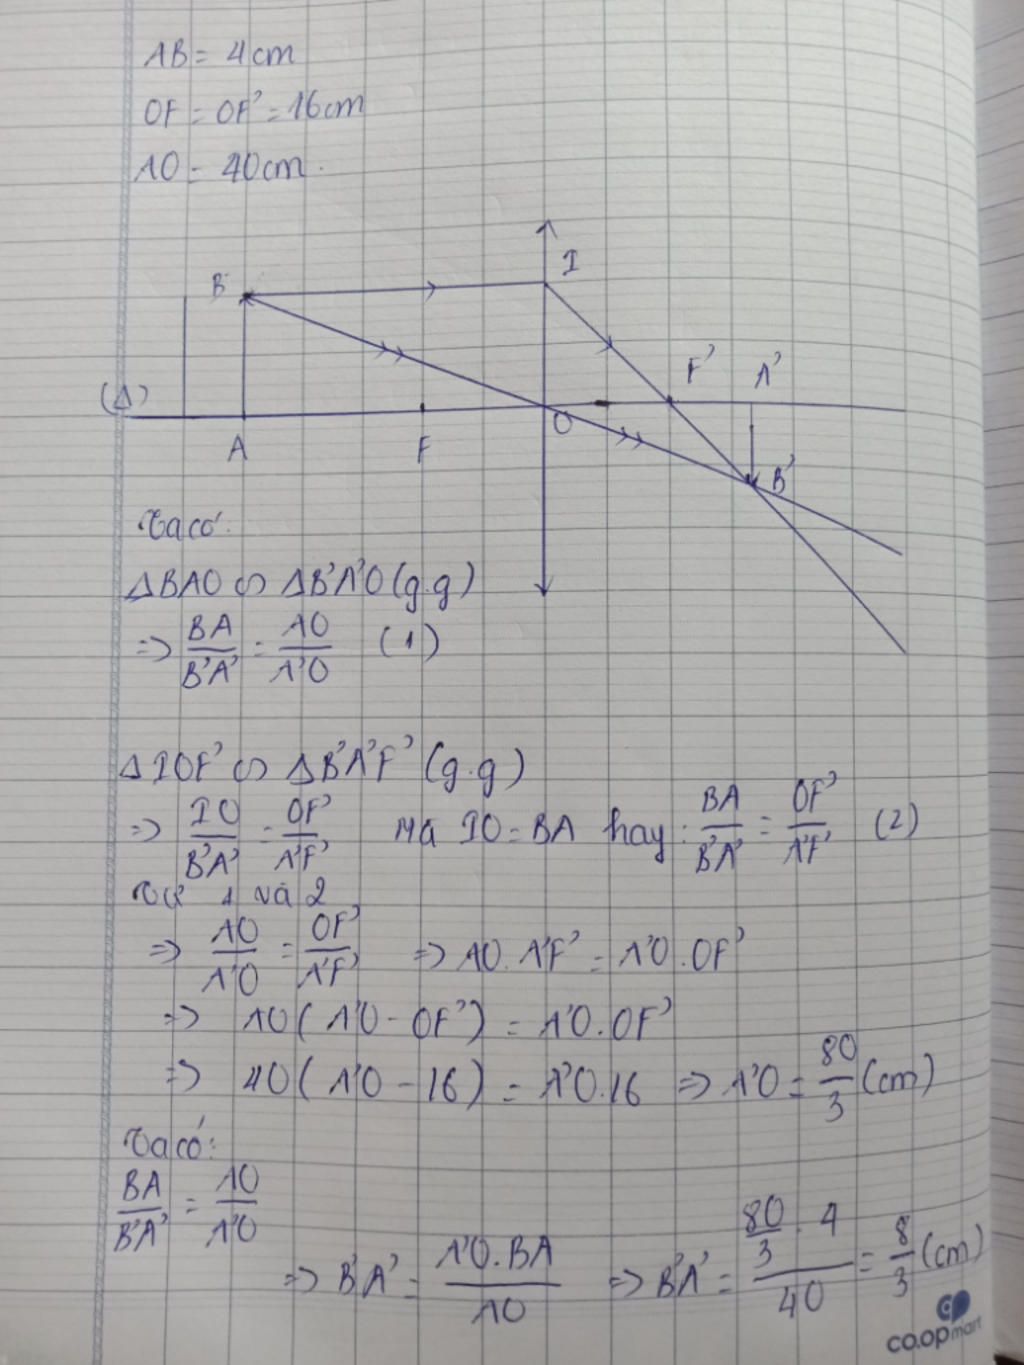 AB = 4cm
OF = OF' = 16cm
AO = 40cm.
I
B
F' A'
(Δ)
O
A F
B'
Ta có:
ΔBAO ∽ ΔB'A'O (g.g)
=> BA/B'A' = AO/A'O (1)
ΔIOF' ∽ ΔB'A'F' (g.g)
=> IO/B'A' = OF'/A'F' Mà IO = BA hay: BA/B'A' = OF'/A'F' (2)
Từ 1 và 2
=> AO/A'O = OF'/A'F' => AO.A'F' = A'O.OF'
=> AO(A'O - OF') = A'O.OF'
=> 40(A'O - 16) = A'O.16 => A'O = 80/3 (cm)
Ta có:
BA/B'A' = AO/A'O
=> B'A' = A'O.BA/AO => B'A' = (80/3 . 4)/40 = 8/3 (cm)
co.opmart